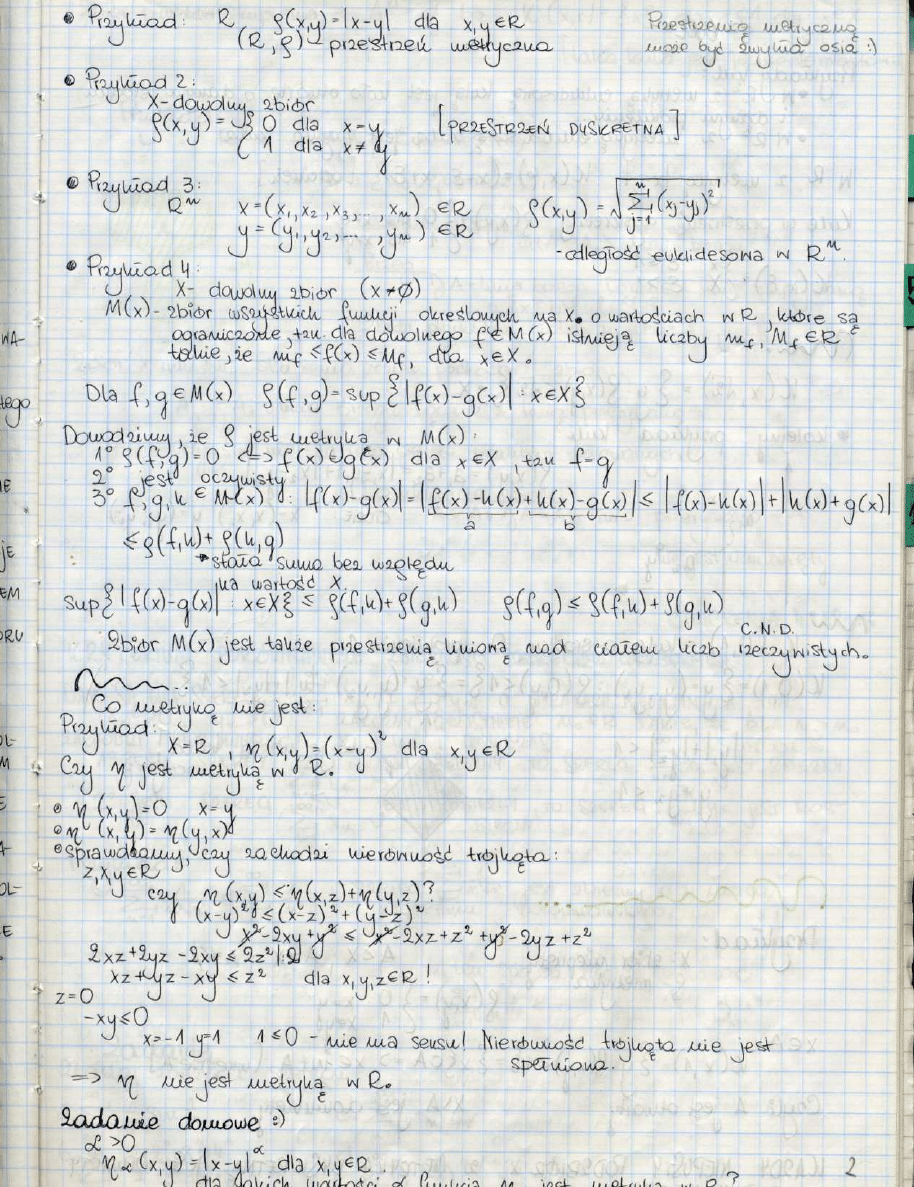 • Przykład: R, ρ(x,y)=|x-y| dla x,y∈R
(R, ρ) - przestrzeń metryczna
Przestrzenią metryczną
może być zwykła oś :)
• Przykład 2:
X- dowolny zbiór
ρ(x,y) = { 0 dla x=y
{ 1 dla x≠y
[PRZESTRZEŃ DYSKRETNA]
• Przykład 3:
Rⁿ x=(x₁,x₂,x₃,..., xₙ) ∈R
y=(y₁,y₂,..., yₙ) ∈R
ρ(x,y) = √(∑ⁿⱼ₌₁(xⱼ-yⱼ)²)
- odległość euklidesowa w Rⁿ.
• Przykład 4:
X- dowolny zbiór (x≠∅)
M(x)- zbiór wszystkich funkcji określonych na X. o wartościach w R, które są
ograniczone, tzn. dla dowolnego f∈M(x) istnieją liczby m_f, M_f ∈R
takie, że m_f ≤f(x) ≤M_f, dla x∈X.
Dla f,g∈M(x) ρ(f,g)=sup{|f(x)-g(x)| : x∈X}
Dowodzimy, że ρ jest metryką w M(x):
1° ρ(f,g)=0 <=> f(x)=g(x) dla x∈X, tzn f=g
2° jest oczywisty
3° f,g,h ∈M(x) : |f(x)-g(x)| = |f(x)-h(x)+h(x)-g(x)| ≤ |f(x)-h(x)|+|h(x)+g(x)|
a b
≤ρ(f,h)+ρ(h,g)
stała suma bez względu
na wartość X.
sup{|f(x)-g(x)| : x∈X} ≤ ρ(f,h)+ρ(g,h) ρ(f,g) ≤ρ(f,h)+ρ(g,h)
C.N.D.
Zbiór M(x) jest także przestrzenią liniową nad ciałem liczb rzeczywistych.
Co metryką nie jest:
Przykład:
X=R, η(x,y)=(x-y)² dla x,y∈R
Czy η jest metryką w R.
• η(x,y)=0 x=y
• η(x,y)=η(y,x)
• sprawdzamy, czy zachodzi nierówność trójkąta:
z,x,y∈R
czy η(x,y) ≤ η(x,z)+η(y,z)?
(x-y)² ≤(x-z)²+(y-z)²
x²-2xy+y² ≤ x²-2xz+z²+y²-2yz+z²
2xz+2yz-2xy ≤ 2z² |:2
xz+yz-xy ≤ z² dla x,y,z∈R!
z=0
-xy≤0
x=-1 y=1 1≤0 - nie ma sensu! Nierówność trójkąta nie jest
spełniona.
=> η nie jest metryką w R.
Zadanie domowe :)
α>0
η_α(x,y)=|x-y|^α dla x,y∈R.
2